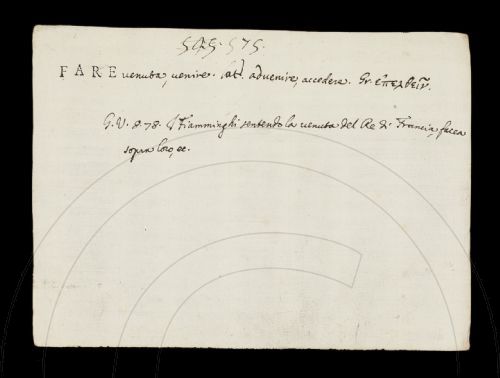 575.
FARE venuta, venire. Lat. advenire, accedere. Gr. ἐπελθεῖν.
G. V. 8. 78. I Fiamminghi sentendo la venuta del Re di Francia, facea
sopra loro, ec.